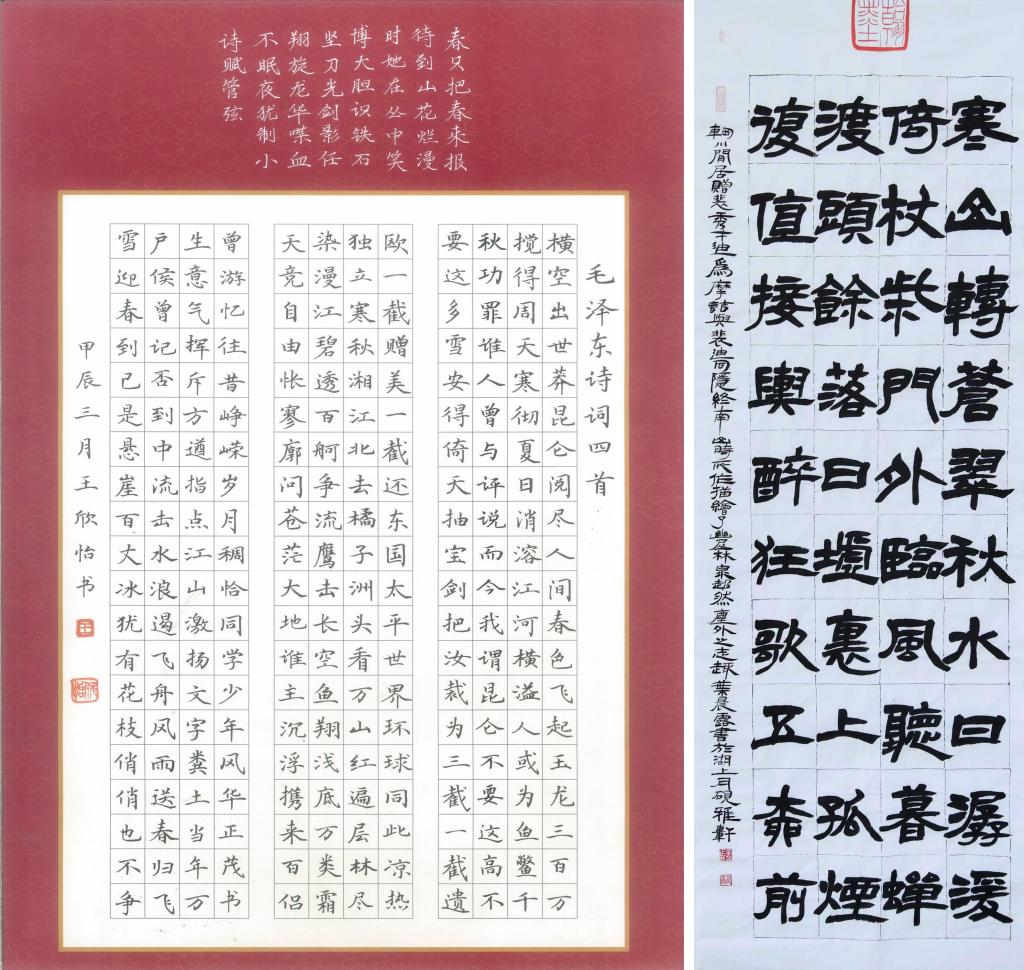 毛泽东诗词四首
横空出世莽昆仑阅尽人间春色飞起玉龙三百万
搅得周天寒彻夏日消溶江河横溢人或为鱼鳖千
秋功罪谁人曾与评说而今我谓昆仑不要这高不
要这多雪安得倚天抽宝剑把汝裁为三截一截遗
欧一截赠美一截还东国太平世界环球同此凉热
独立寒秋湘江北去橘子洲头看万山红遍层林尽
染漫江碧透百舸争流鹰击长空鱼翔浅底万类霜
天竞自由怅寥廓问苍茫大地谁主沉浮携来百侣
曾游忆往昔峥嵘岁月稠恰同学少年风华正茂书
生意气挥斥方遒指点江山激扬文字粪土当年万
户侯曾记否到中流击水浪遏飞舟风雨送春归飞
雪迎春到已是悬崖百丈冰犹有花枝俏俏也不争
春只把春来报
待到山花烂漫
时她在丛中笑
博大胆识铁石
坚刀光剑影任
翔旋龙华喋血
不眠夜犹制小
诗赋管弦
甲辰三月王欣怡书
寒山轉蒼翠秋水日潺湲
倚杖柴門外臨風聽暮蟬
渡頭餘落日墟裏上孤煙
復值接輿醉狂歌五柳前
輞川閒居贈裴秀才迪爲摩詰與裴迪同隱終南山時所作描繪了幽居林泉超然塵外之志趣葉晨露書於湖上硯雅軒